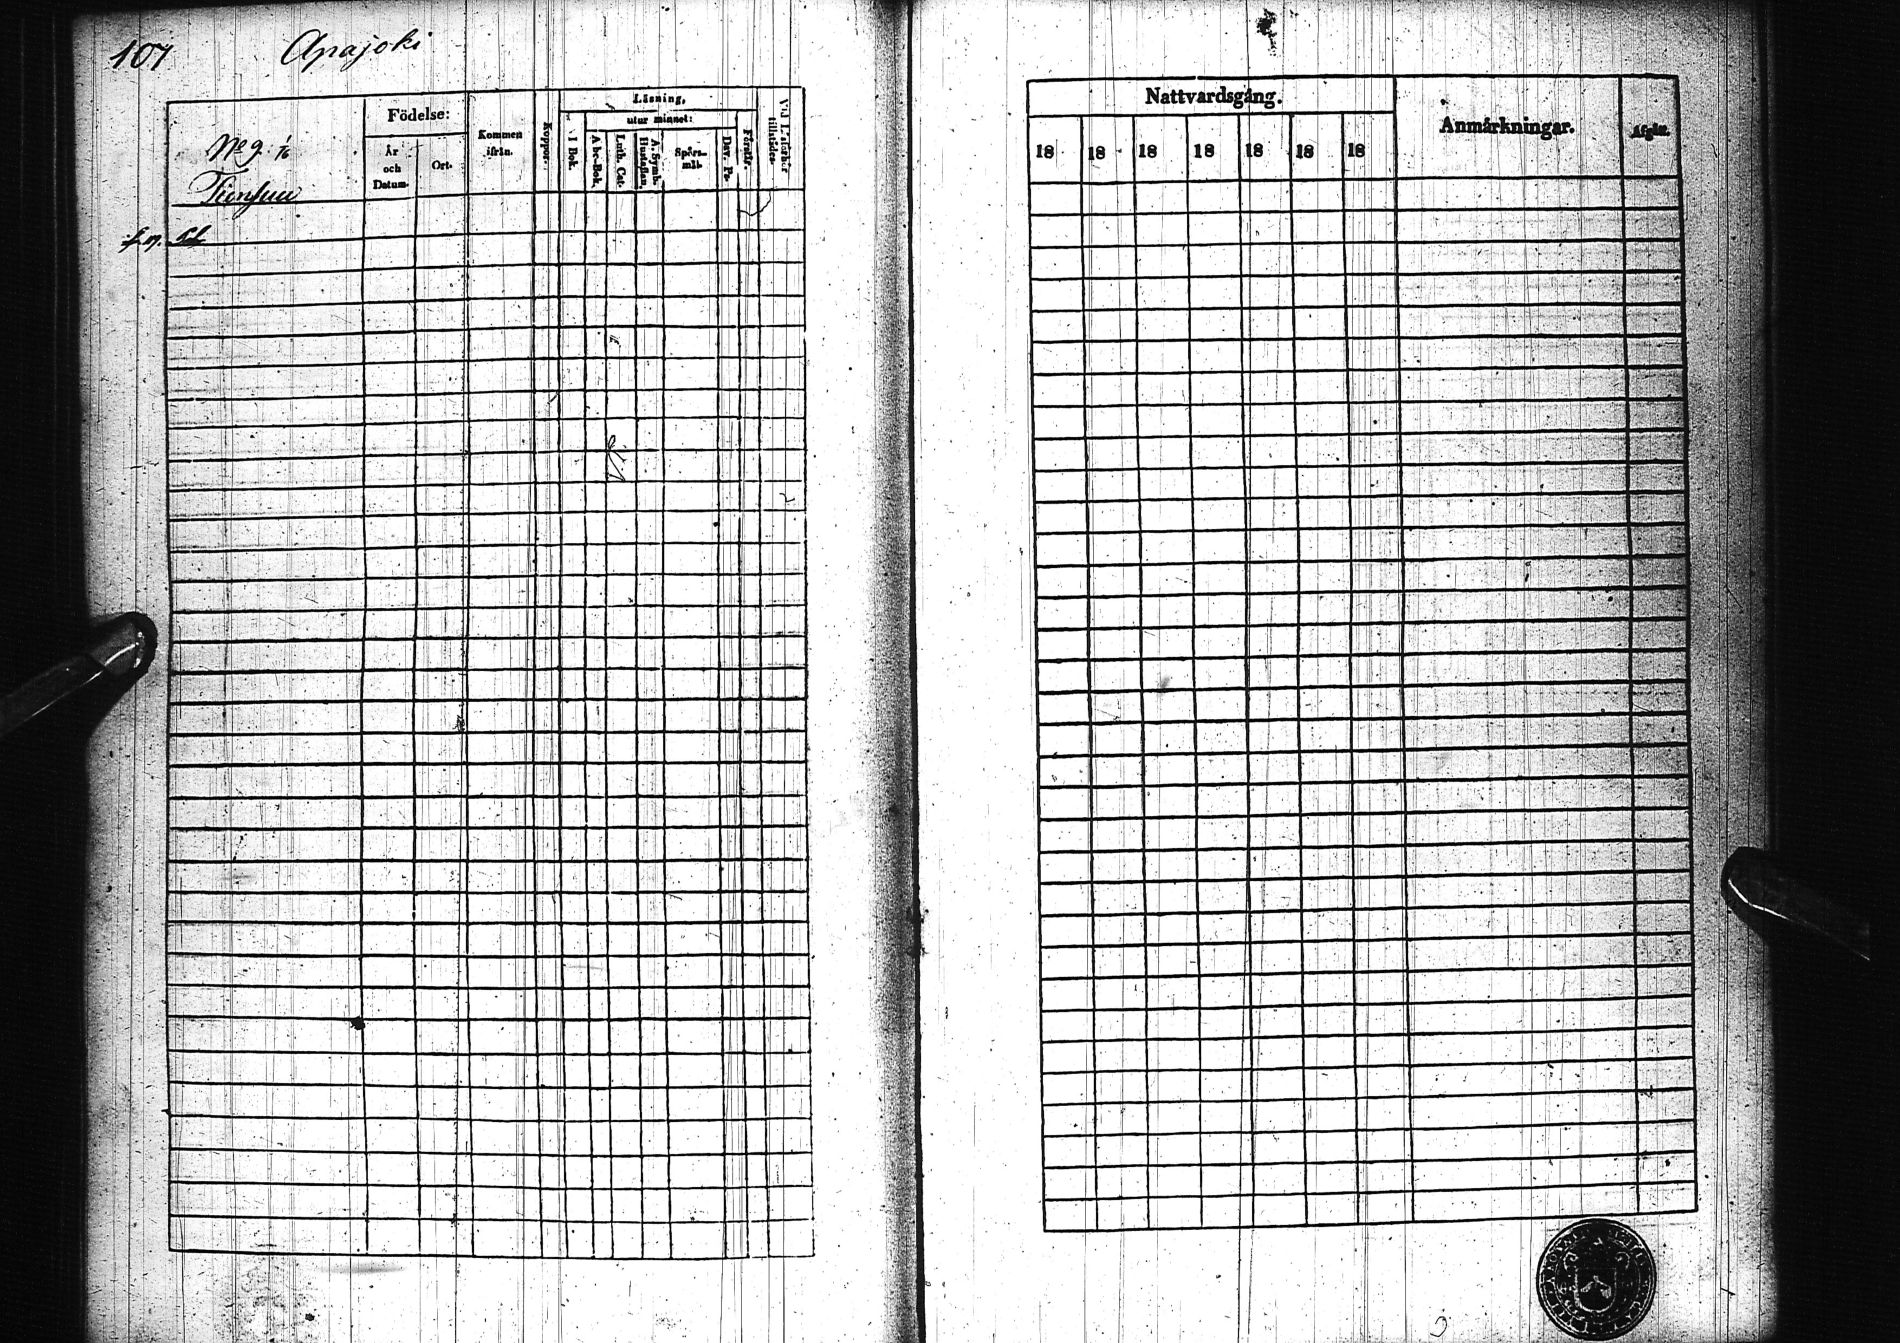 107 Apajoki
No 9. 1/6
Tiensuu
Födelse:
År och Datum.
Ort.
Kommen ifrån.
Koppor.
Läsning,
utur minnet:
I Bok.
Abc-Bok.
Luth. Cat.
A. Symb. Hustaflan.
Spörsmål.
Dav. Ps.
Förstår.
Nattvardsgång.
18 18 18 18 18 18 18
Anmärkningar.
Afgån.